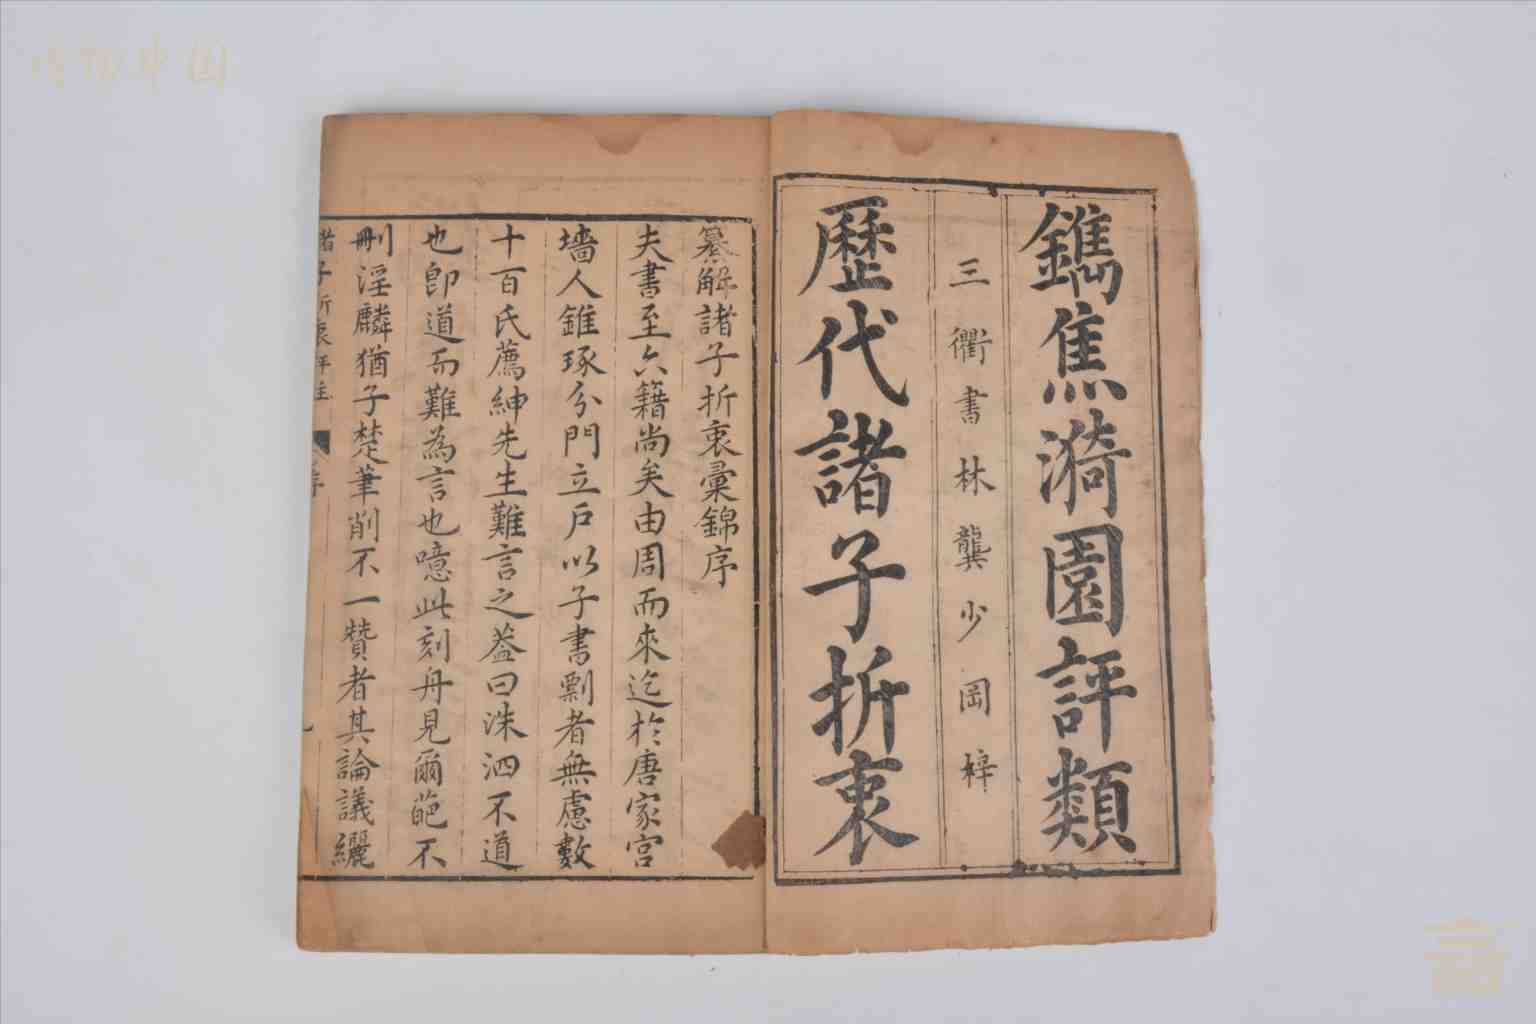 鐫焦漪園評類
三衢書林龔少岡梓
歷代諸子折衷
纂解諸子折衷彙錦序
夫書至六籍尚矣由周而來迄於唐家宮
墻人錐琢分門立戶以子書剽者無慮數
十百氏薦紳先生難言之葢曰洙泗不道
也卽道而難為言也噫此刻舟見爾葩不
刪淫麟猶子楚筆削不一贊者其論議纚
諸子折衷評註
序